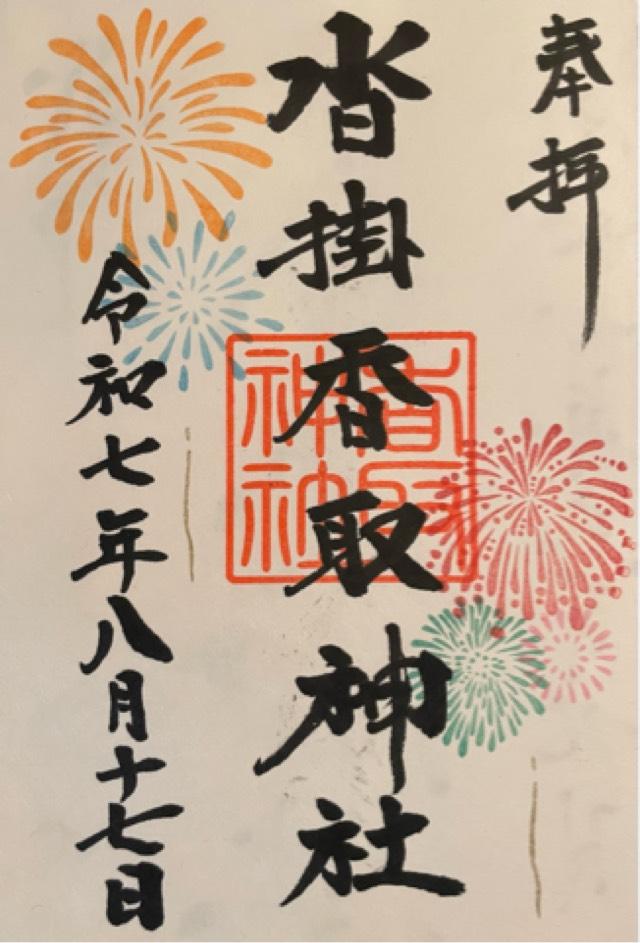 奉拝
沓掛香取神社
香取神社
令和七年八月十七日